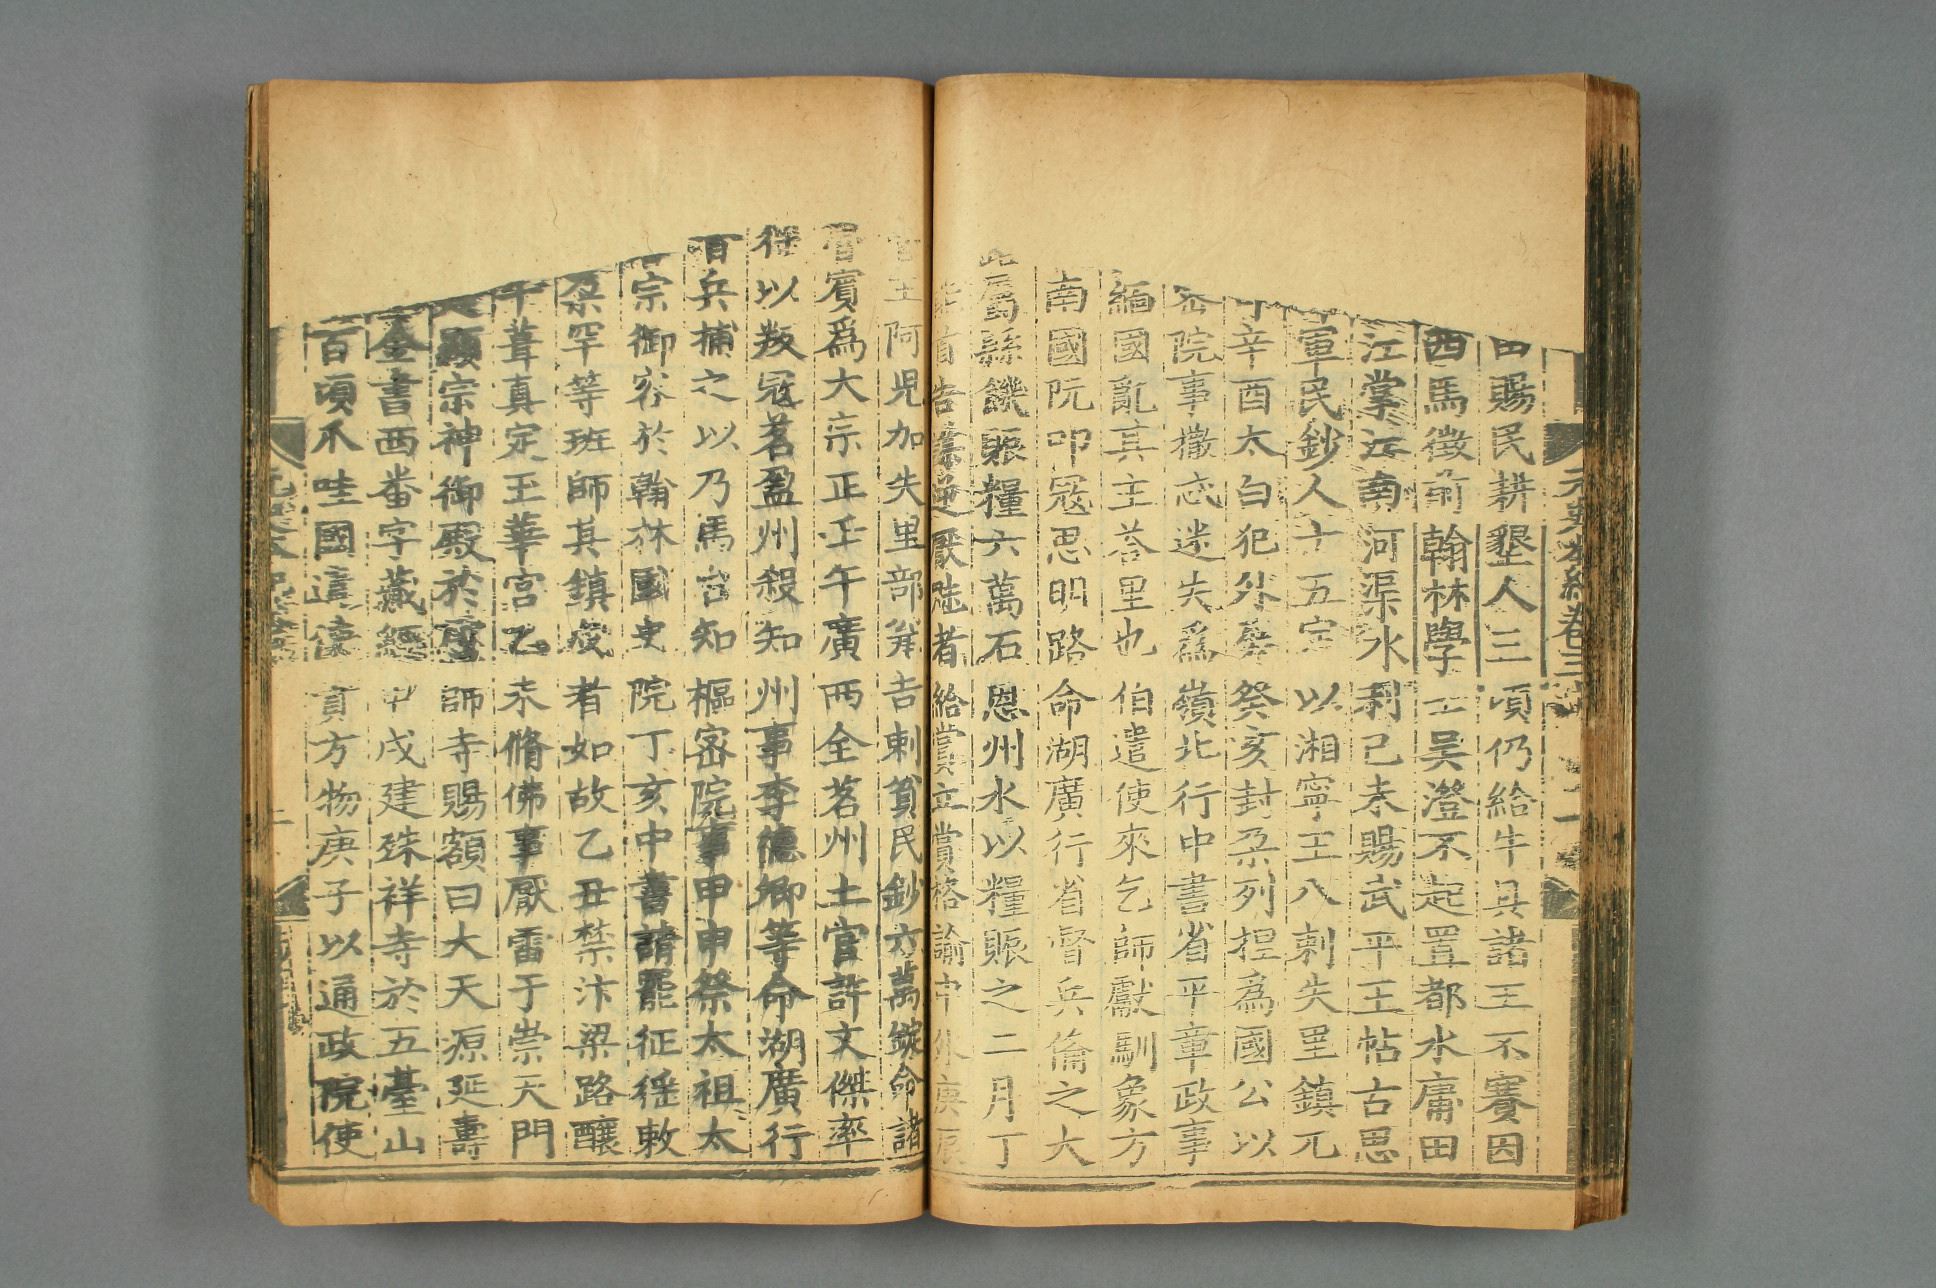 田賜民耕墾人三頃仍給牛具諸王不賽因
西馬徵前翰林學士吳澄不起置都水庸田
江掌江南河渠水利己未賜武平王帖古思
軍民鈔人十五定以湘寧王八剌失里鎮兀
辛酉太白犯外屏癸亥封朶列捏爲國公以
密院事撒忒迷失爲嶺北行中書省平章政事
緬國亂其主荅里也伯遣使來乞師獻馴象方
南國阮叩寇思明路命湖廣行省督兵備之大
屬縣饑賑糧六萬石恩州水以糧賑之二月丁
首告謀逆厭魅者給賞立賞格諭中外庚辰
王阿児加失里部弁吉剌貧民鈔六萬錠命諸
賓爲大宗正壬午廣西全茗州土官許文傑率
徭以叛寇茗盈州殺知州事李德卿等命湖廣行
百兵捕之以乃馬台知樞密院事甲申祭太祖太
宗御容於翰林國史院丁亥中書請罷征徭敕
朶罕等班師其鎮戍者如故乙丑禁汴梁路釀
葺真定玉華宮乙未脩佛事厭雷于崇天門
顯宗神御殿於師寺賜額曰大天源延壽
金書西畨字藏經甲戌建殊祥寺於五臺山
百頃爪哇國遣使貢方物庚子以通政院使
元史本紀卷三